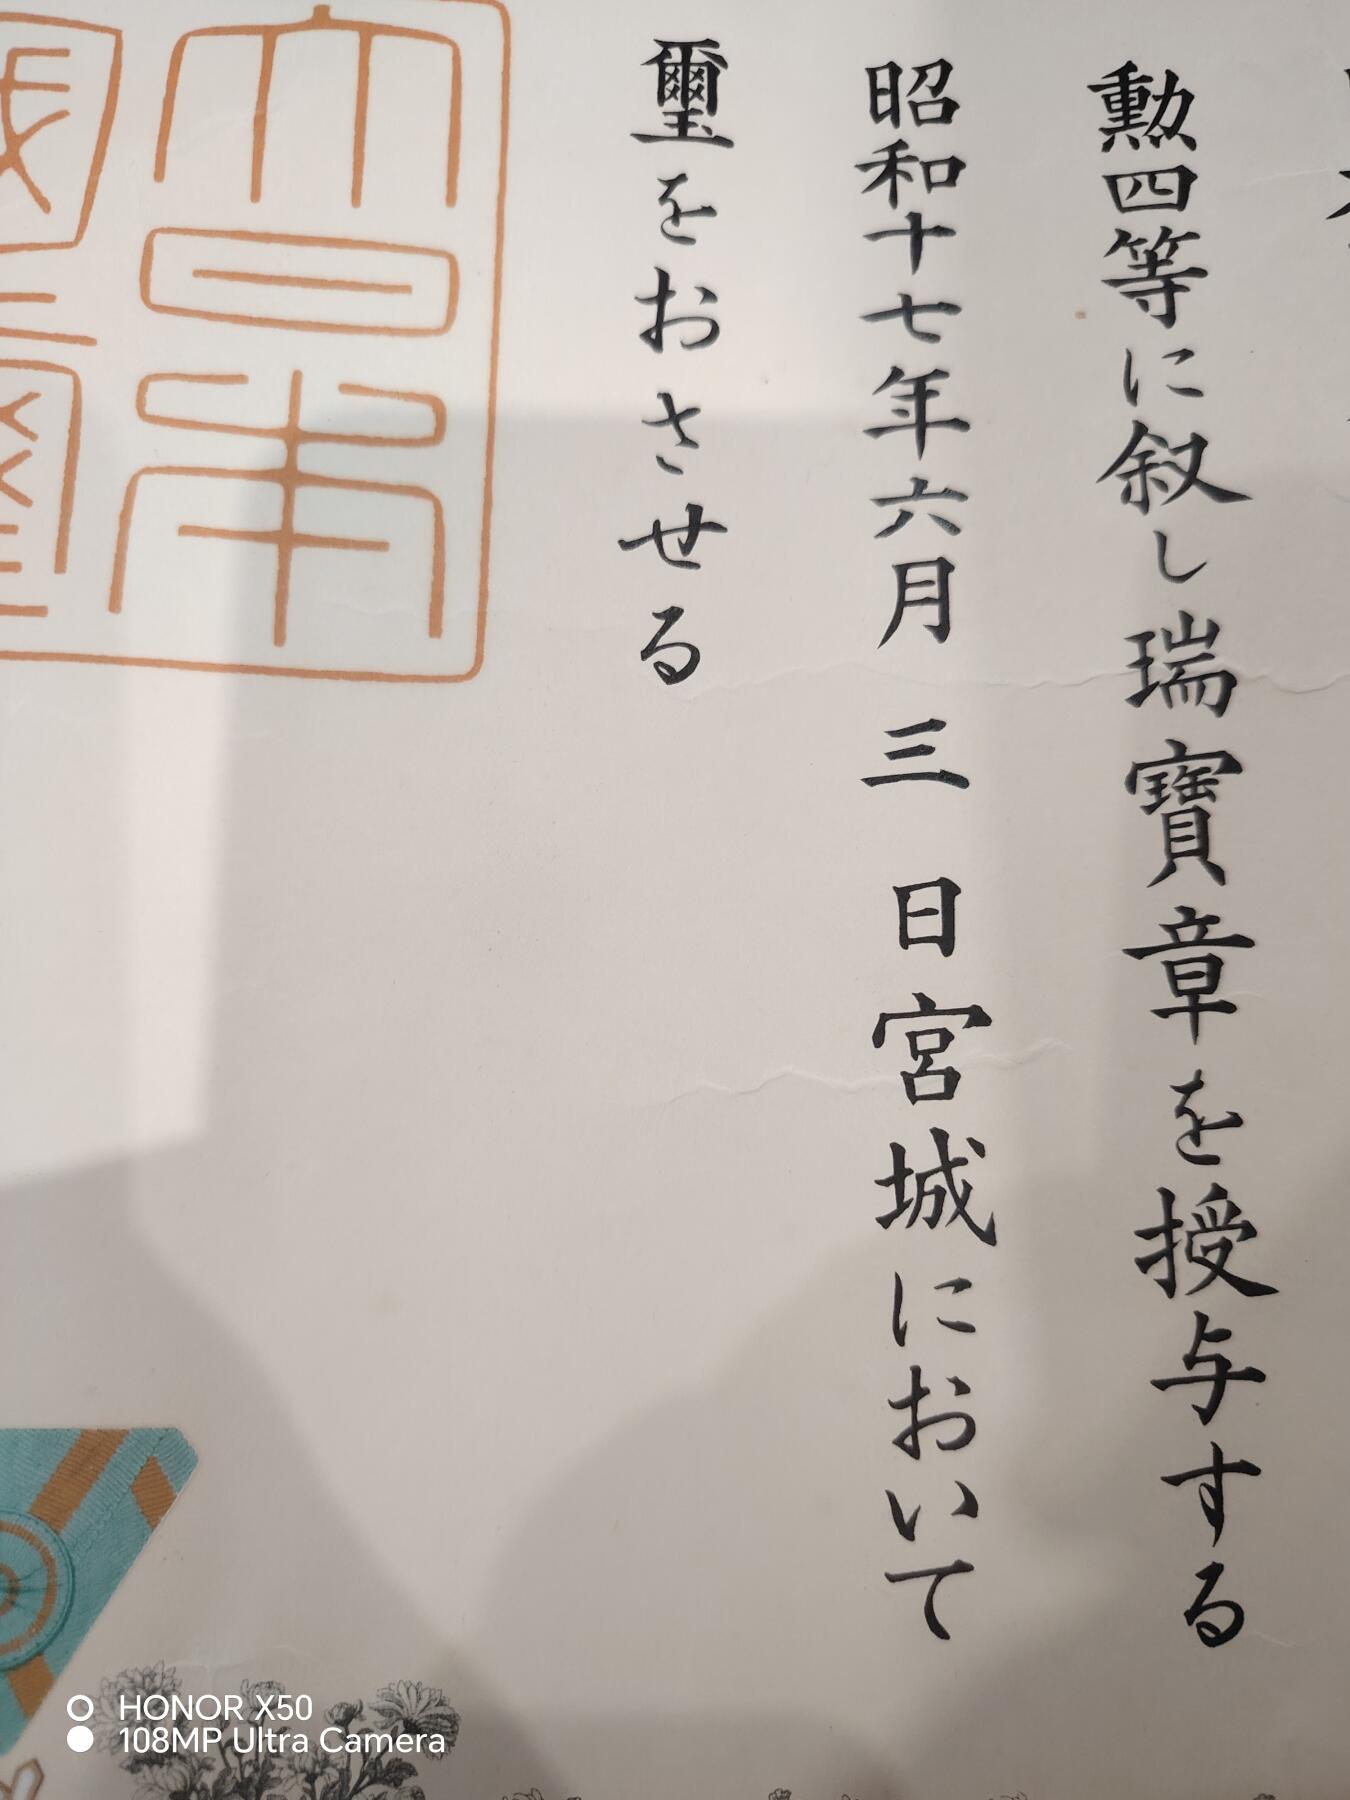 勲四等に叙し瑞寶章を授与する
昭和十七年六月三日宮城において
璽をおさせる
大日本
HONOR X50
108MP Ultra Camera